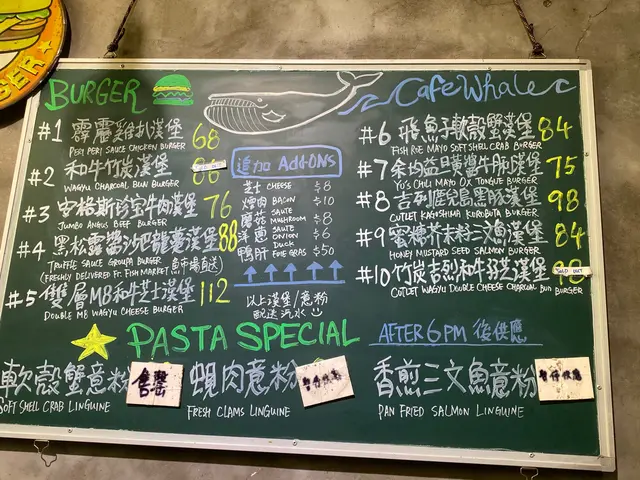 BURGER
CafeWhale
#1 霹靂雞扒漢堡 68
PERI PERI SAUCE CHICKEN BURGER
#2 和牛竹炭漢堡
WAGYU CHARCOAL BUN BURGER
#3 安格斯珍宝牛肉漢堡 76
JUMBO ANGUS BEEF BURGER
#4 黑松露醬沙巴龍躉漢堡 88
TRUFFLE SAUCE GROUPA BURGER
(FRESHLY DELIVERED FT. FISH MARKET 魚市場直送)
#5 雙層M8和牛芝士漢堡 112
DOUBLE M8 WAGYU CHEESE BURGER
追加 ADD-ONS
芝士 CHEESE $8
煙肉 BACON $10
蘑菇 SAUTE MUSHROOM $8
洋蔥 SAUTE ONION $6
鴨肝 DUCK FOIE GRAS $50
以上漢堡/意粉
配送汽水
#6 飛魚子軟殼蟹漢堡 84
FISH ROE MAYO SOFT SHELL CRAB BURGER
#7 余均益旦黃醬牛脷漢堡 75
YU'S CHILI MAYO OX TONGUE BURGER
#8 吉列鹿兒島黑豚漢堡 98
CUTLET KAGOSHIMA KUROBUTA BURGER
#9 蜜糖芥末籽三文魚漢堡 84
HONEY MUSTARD SEED SALMON BURGER
#10 竹炭吉烈和牛芝士漢堡
SOLD OUT
CUTLET WAGYU DOUBLE CHEESE CHARCOAL BUN BURGER
PASTA SPECIAL
AFTER 6PM 後供應
軟殼蟹意粉
售罄
SOFT SHELL CRAB LINGUINE
蜆肉意粉
暫停供應
FRESH CLAMS LINGUINE
香煎三文魚意粉
暫停供應
PAN FRIED SALMON LINGUINE